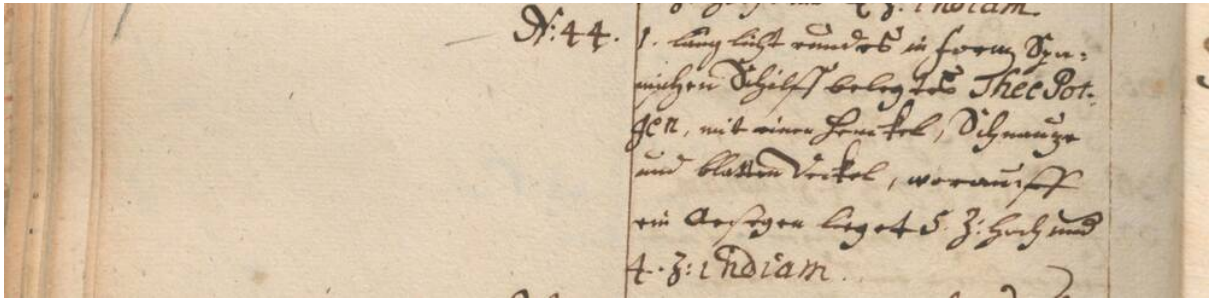 & Z: in diam.
N: 44.
1. länglicht rundes in form Spa-
nischen Schilff belegtes Thee Pot-
gen, mit einen Henckel, Schnautze
und blatten Deckel, worauff
ein Aestgen lieget 5. Z: hoch und
4. Z: in diam.